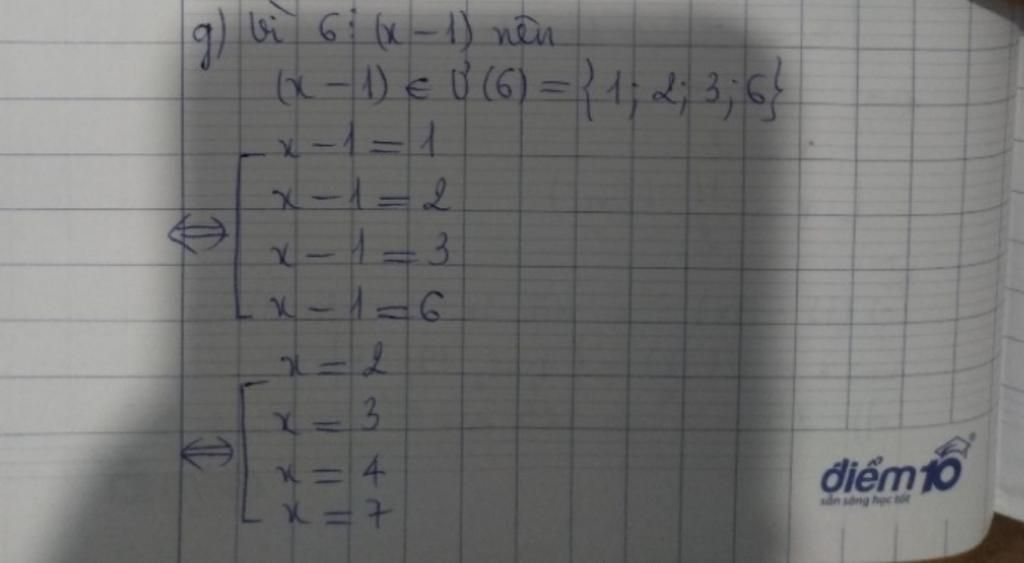 g) Vì 6 ⋮ (x - 1) nên
(x - 1) ∈ Ư(6) = {1; 2; 3; 6}
x - 1 = 1
x - 1 = 2
⇔
x - 1 = 3
x - 1 = 6
x = 2
x = 3
⇔
x = 4
x = 7
điểm10
sẵn sàng học tốt